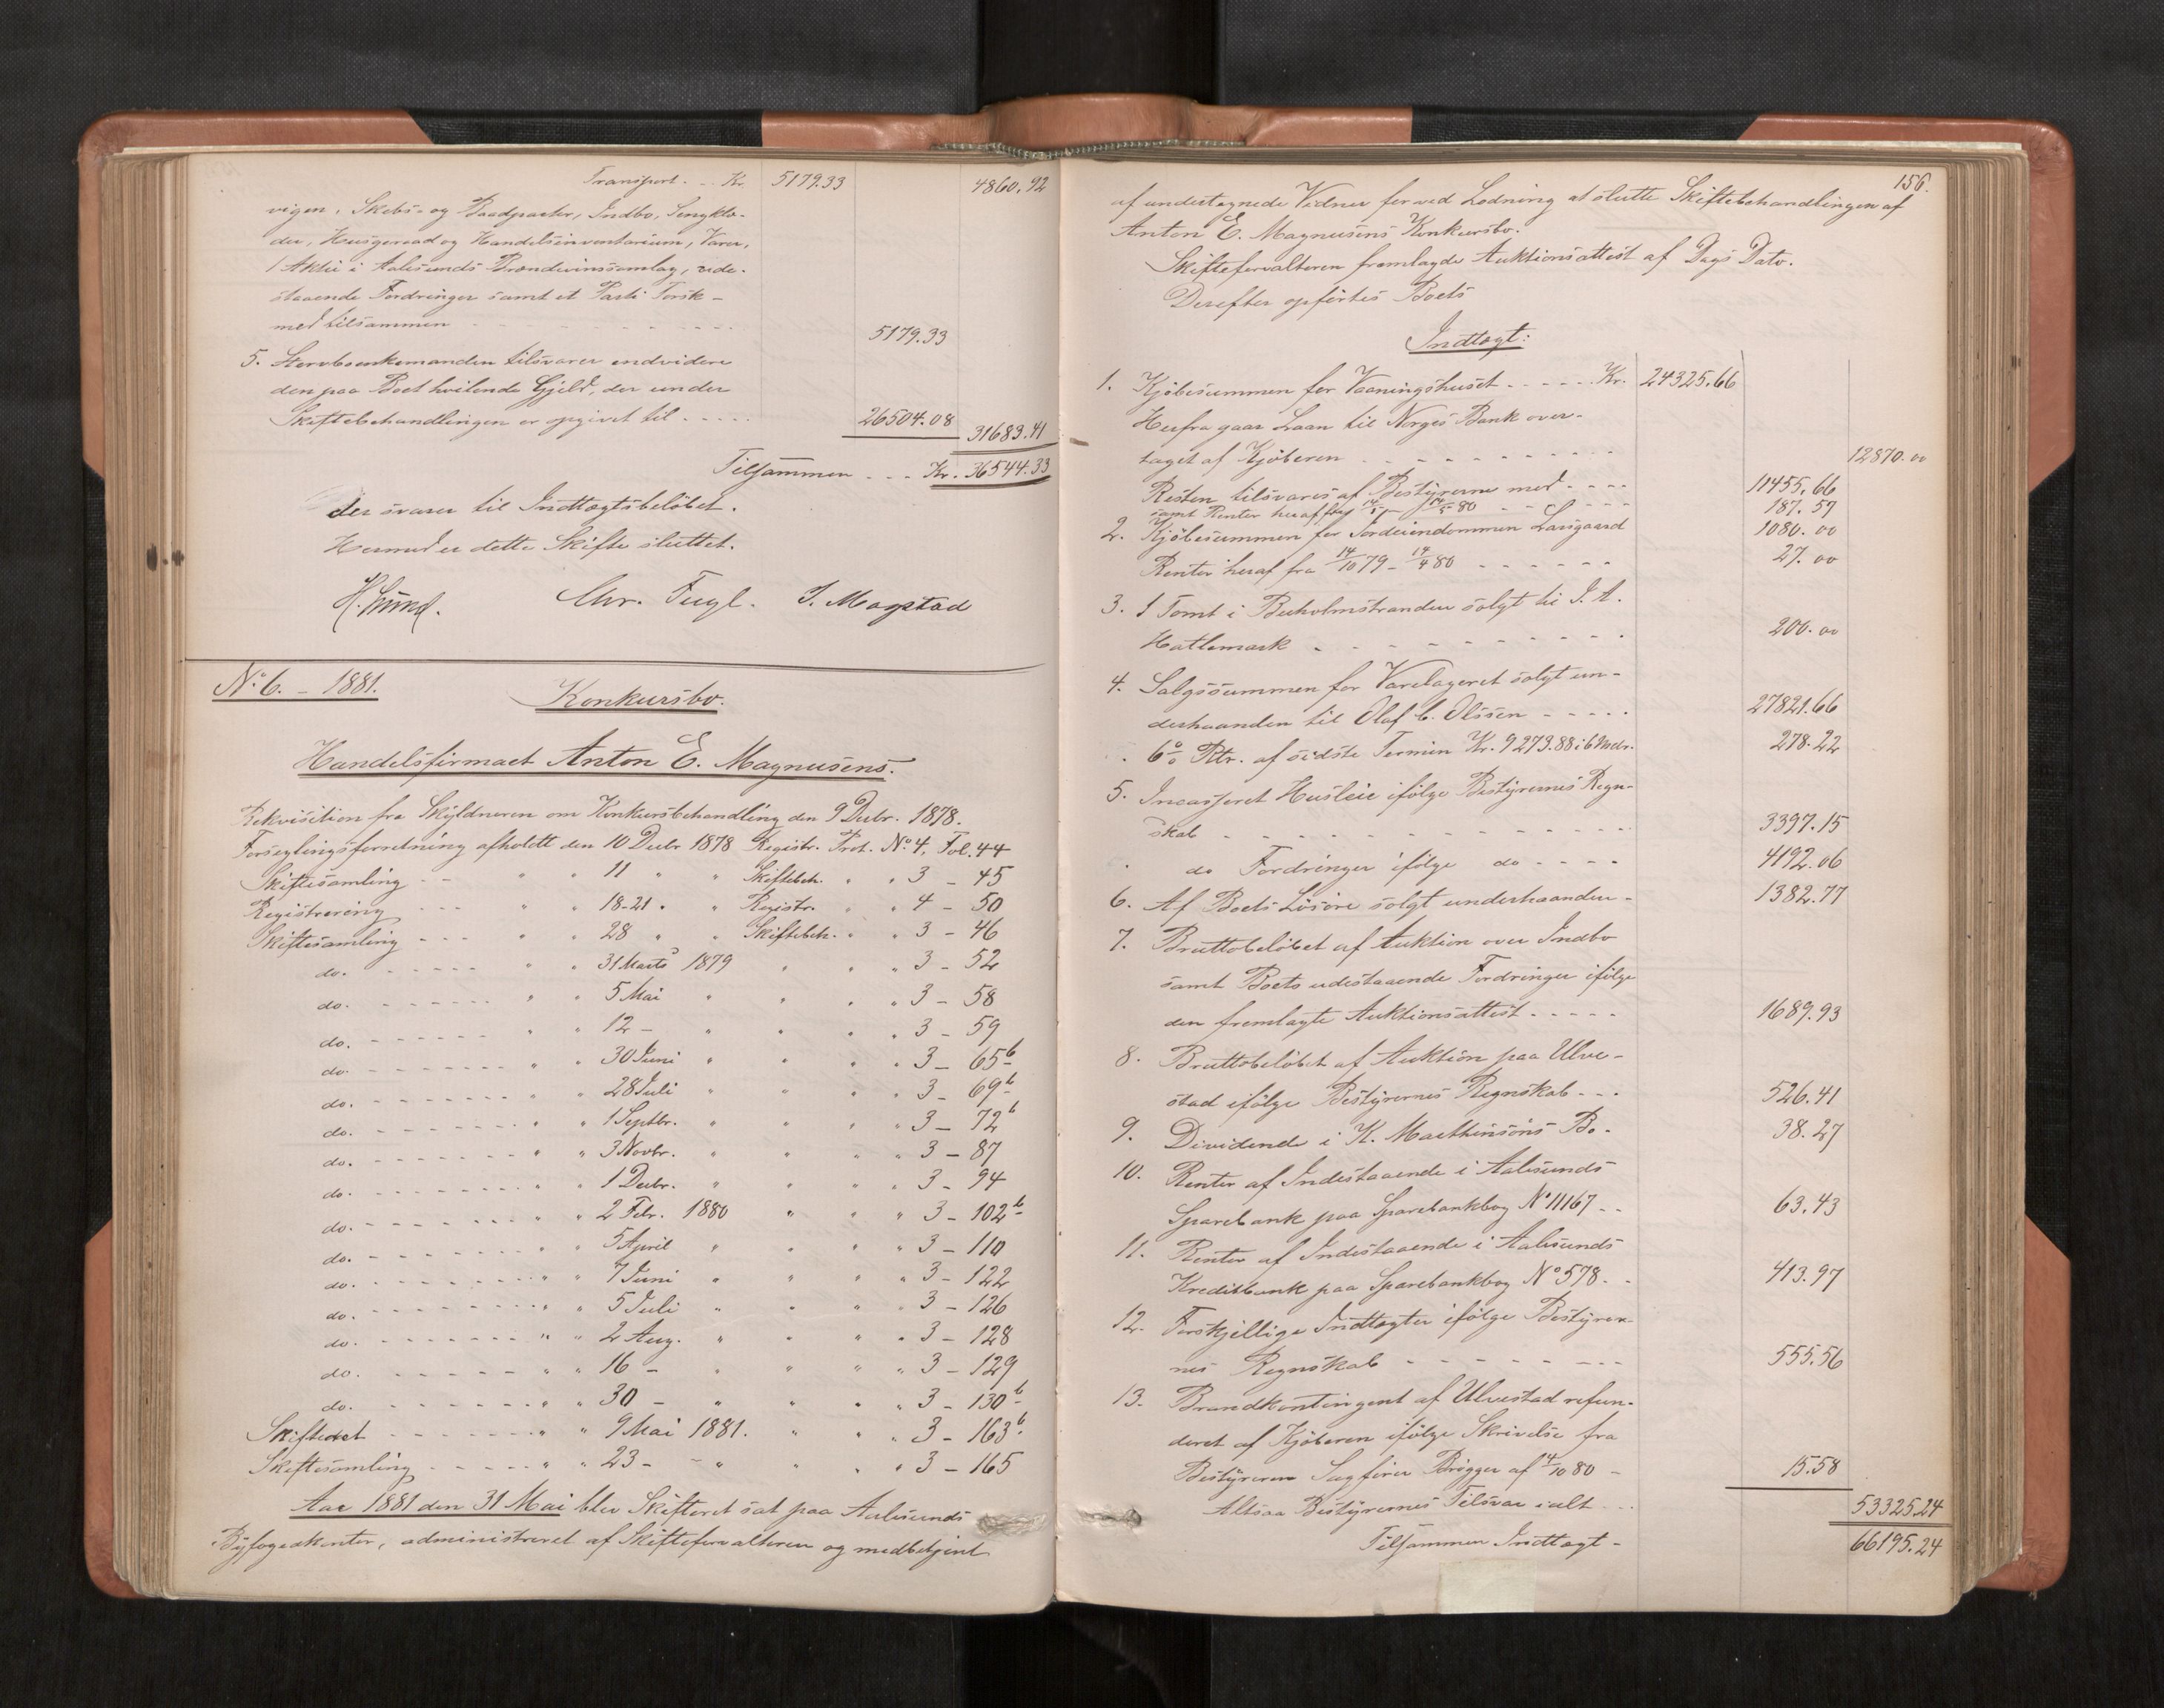 Transport. - Kr. 5179.33 4860.92
vigen, Skibs- og Baadparter, Indbo, Sengklæ-
der, Husgeraad og Handelsinventarium, Varer,
1 Aktie i Aalesunds Brændevinssamlag, ude-
staaende Fordringer samt et Parti Torsk -
med tilsammen - - - - 5179.33
5. Stervboenkemanden tilsvarer endvidere
den paa Boet hvilende Gjeld, der under
Skiftebehandlingen er opgivet til - - - - 26504.08 31683.41
Tilsammen - - - Kr. 36544.33
der svarer til Indtægtsbeløbet.
Hermed er dette Skifte sluttet.
Chr. Fugl. J. Magstad
No. 6. - 1881. Konkursbo.
Handelsfirmaet Anton E. Magnusens.
Rekvisition fra Skyldneren om Konkursbehandling den 9 Decbr. 1878.
Forseglingsforretning afholdt den 10 Decbr 1878 Registr. Prot. No. 4, Fol. 44
Skiftesamling - - " " 11 " " Skiftebeh. " " 3 - 45
Registrering - - - " " 18-21 " " Registr. " " 4 - 50
Skiftesamling - - - " " 28 " " Skiftebeh. " " 3 - 46
do. - - - - - " " 31 Marts 1879 " " " 3 - 52
do. - - - - - " " 5 Mai " " " " 3 - 58
do. - - - - - " " 12 - " " " " 3 - 59
do. - - - - - " " 30 Juni " " " " 3 - 65b
do. - - - - - " " 28 Juli " " " " 3 - 69b
do. - - - - - " " 1 Septbr. " " " " 3 - 72b
do. - - - - - " " 3 Novbr. " " " " 3 - 87
do. - - - - - " " 1 Decbr. " " " " 3 - 94
do. - - - - - " " 2 Febr. 1880 " " " 3 - 102b
do. - - - - - " " 5 April " " " " 3 - 110
do. - - - - - " " 7 Juni " " " " 3 - 122
do. - - - - - " " 5 Juli " " " " 3 - 126
do. - - - - - " " 2 Aug. " " " " 3 - 128
do. - - - - - " " 16 - " " " " 3 - 129
do. - - - - - " " 30 - " " " " 3 - 130b
Skifteret - - - - - " " 9 Mai 1881. " " " 3 - 163b
Skiftesamling - - - - " " 23 - " " " " 3 - 165
Aar 1881 den 31 Mai blev Skifteret sat paa Aalesunds
Byfogedkontor, administreret af Skifteforvalteren og medbetjent
156.
af undertegnede Vidner for ved Lodning at slutte Skiftebehandlingen af
Anton E. Magnusens Konkursbo.
Skifteforvalteren fremlagde Auktionsattest af Dags Dato.
Derefter opførtes Boets
Indtægt:
1. Kjøbesummen for Vaaningshuset - - - - - Kr. 24325.66
Herfra gaar Laan til Norges Bank over-
taget af Kjøberen - - - - - 12870.00
Resten tilsvares af Bestyrerne med - - - - 11455.66
samt Renter heraf - - - 187.57
2. Kjøbesummen for Jordeiendommen Larsgaard 1080.00
Renter heraf fra 14/10 79 - 14/4 80 - - - - - 27.00
3. 1 Tomt i Buholmstranden solgt til J. A.
Hatlemark - - - - - 200.00
4. Salgssummen for Varelageret solgt un-
derhaanden til Olaf C. Olssen - - - - - 27821.66
6% Rtr. af sidste Termin Kr. 9273.88 i 6 Mdr. 278.22
5. Incasseret Husleie ifølge Bestyrernes Regn-
skab - - - - - 3397.15
do Fordringer ifølge do - - - - 4192.06
6. Af Boets Løsøre solgt underhaanden - 1382.77
7. Bruttobeløbet af Auktion over Indbo
samt Boets udestaaende Fordringer ifølge
den fremlagte Auktionsattest - - - - - 1689.93
8. Bruttobeløbet af Auktion paa Ulve-
stad ifølge Bestyrernes Regnskab - - - 526.41
9. Dividende i K. Marthinsons Bo - 38.27
10. Renter af Indestaaende i Aalesunds
Sparebank paa Sparebankbog No 11167 - - 63.43
11. Renter af Indestaaende i Aalesunds
Kreditbank paa Sparebankbog No 578. - 413.97
12. Forskjellige Indtægter ifølge Bestyrer-
nes Regnskab - - - - - 555.56
13. Brandkontingent af Ulvestad refun-
deret af Kjøberen ifølge Skrivelse fra
Bestyreren Sagfører Brøgger af 4/10 80 - 15.58
Altsaa Bestyrernes Tilsvar ialt - - - 53325.24
Tilsammen Indtægt - 66195.24